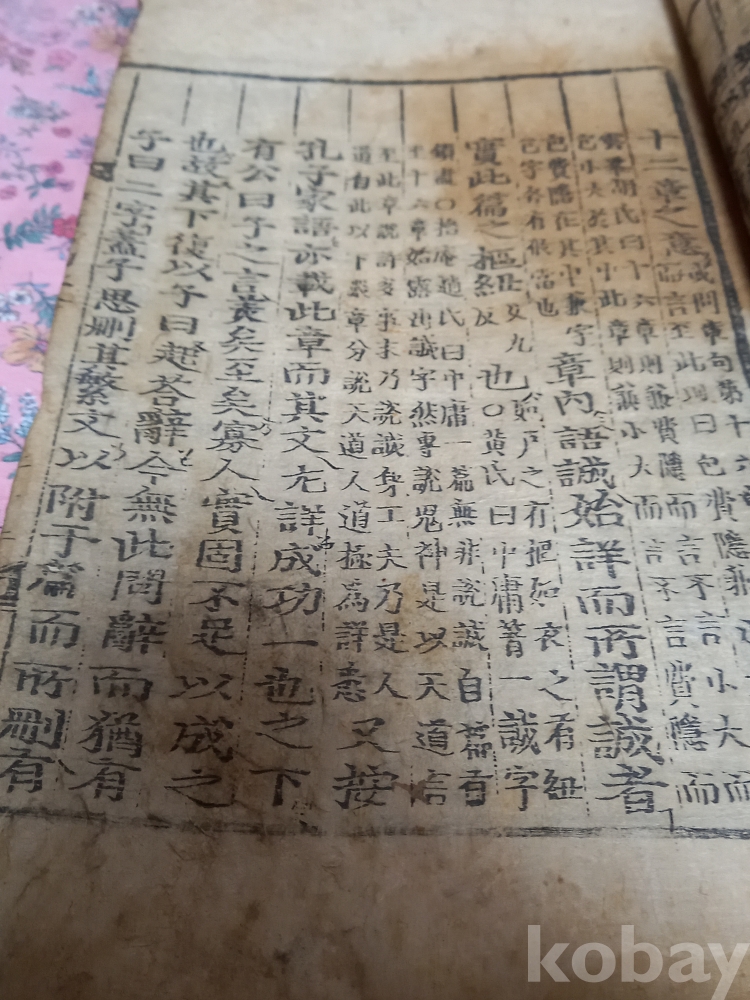 十二章之意
或問章句第十六
而言至此則曰包費隱兼小大而
雲峯胡氏曰十六章則兼費隱而言不言小大而
包小大於其中此章則兼小大而言不言費隱而
包費隱在其中兼字
包字各有攸當也
章內語誠始詳而所謂誠者
實此篇之樞紐
女九
反
也
如戶之有樞如衣之有紐
○黃氏曰中庸著一誠字
鎖盡○格庵趙氏曰中庸一篇無非說誠自篇首
至十六章始露出誠字然專說鬼神是以天道言
至此章說許多事末乃說誠身工夫乃是人
道自此以下數章分說天道人道極為詳悉
又按
孔子家語亦載此章而其文尤詳成功一也之下
有公曰子之言美矣至矣寡人實固不足以成之
也故其下復以子曰起答辭今無此問辭而猶有
子曰二字蓋子思刪其繁文以附于篇而所刪有
kobay